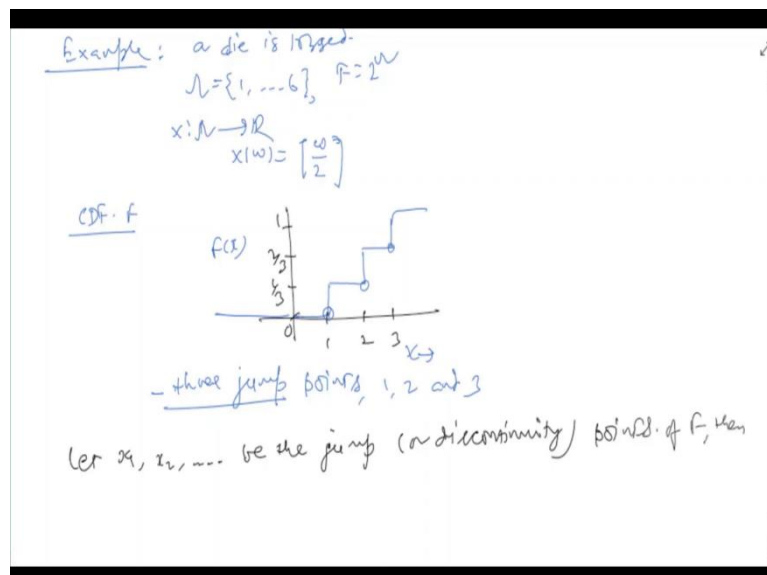 Example: a die is tossed.
Ω={1, ...6}, F=2^Ω
X:Ω→R
X(ω)= ⌈ω/2⌉
CDF. F
F(x)
1
2/3
1/3
0 1 2 3 x→
- three jump points, 1, 2 and 3
Let x1, x2, .... be the jump (or discontinuity) points of F, then